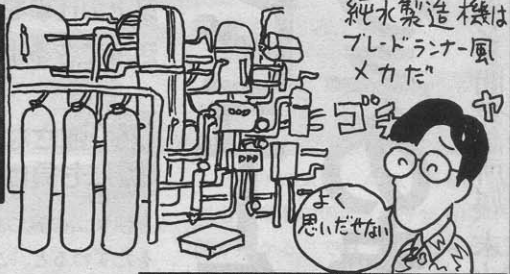 純水製造機は
ブレードランナー風
メカだ
ゴチャ
よく
思いだせない